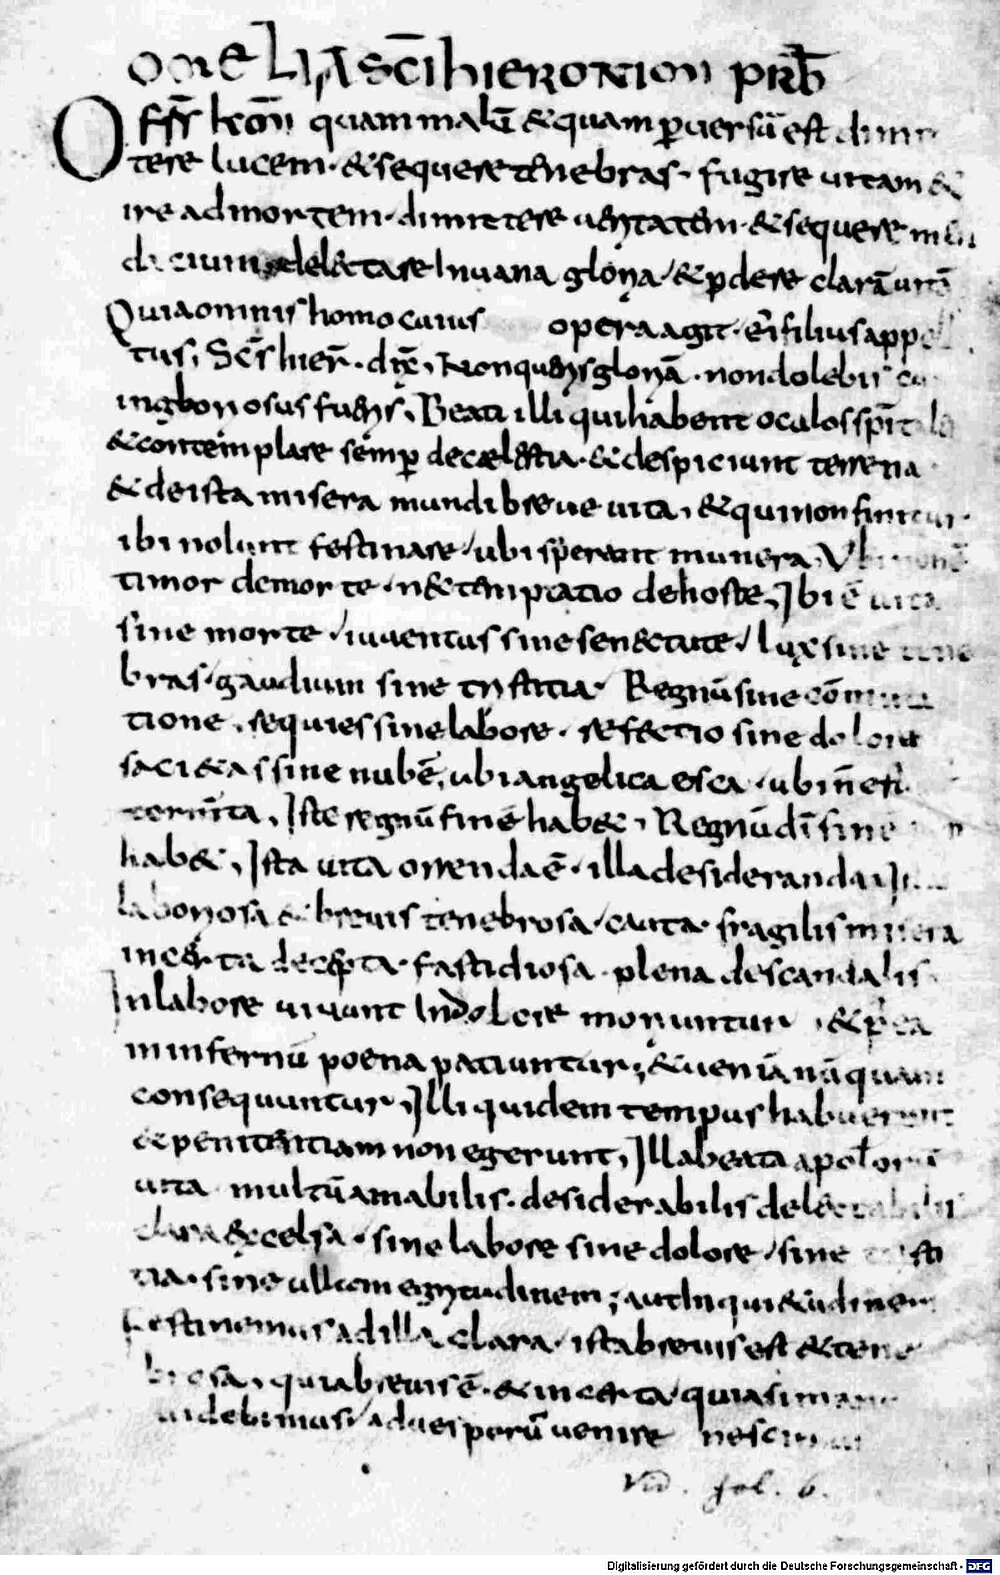 OMELIA SCI HIERONIMI PRB
O FFR kmi quam malū & quam puersū est dimit
tere lucem · & sequere tenebras · fugire uitam &
ire ad mortem · dimittere ueritatem · & sequere
delectare In uana gloria / & pdere clarā uitā
Quia omnis homo cuius opera agit · ei filius appell
tus, Scs hier · dix, Non queris gloriā · non dolebis cu
ingloriosus fueris, Beati illi qui habent oculos spiritales
& contemplare semp de caelestia · & despiciunt terrena
& de ista misera mundi breue uita, & qui non
ibi nolunt festinare / ubi sperent munera, Ubi non ē
timor de morte · n& temptatio de hoste, Ibi ē uita
sine morte / iuuentus sine senectute / lux sine tene
bras / gaudium sine tristitia · Regnū sine cōmuta
tione, requies sine labore · refectio sine dolore
sacietas sine nubē, ubi angelica esca / ubi
Iste regnū finē hab&, Regnū dī sine
hab&, Ista uita orrenda ē · illa desideranda
laboriosa & breuis tenebrosa / fragilis misera
incerta decepta · fastidiosa · plena de scandalis
In labore uiuunt In dolore moriuntur, & postea
in infernū poena patiuntur; & ueniā nūquam
consequuntur, Illi quidem tempus habuerunt
& penitentiam non egerunt, Illa beata apostolorū
uita multū amabilis · desiderabilis delectabilis
clara & excelsa · sine labore sine dolore / sine tristi
tia · sine ullam egritudinem;
Festinemus ad illa clara · ista breuis est & tene
brosa, quia breuis ē · & incerta / quia si mane
uidebimus / ad uesperū uenire nescimus
Vid. fol. 6.
Digitalisierung gefördert durch die Deutsche Forschungsgemeinschaft - DFG